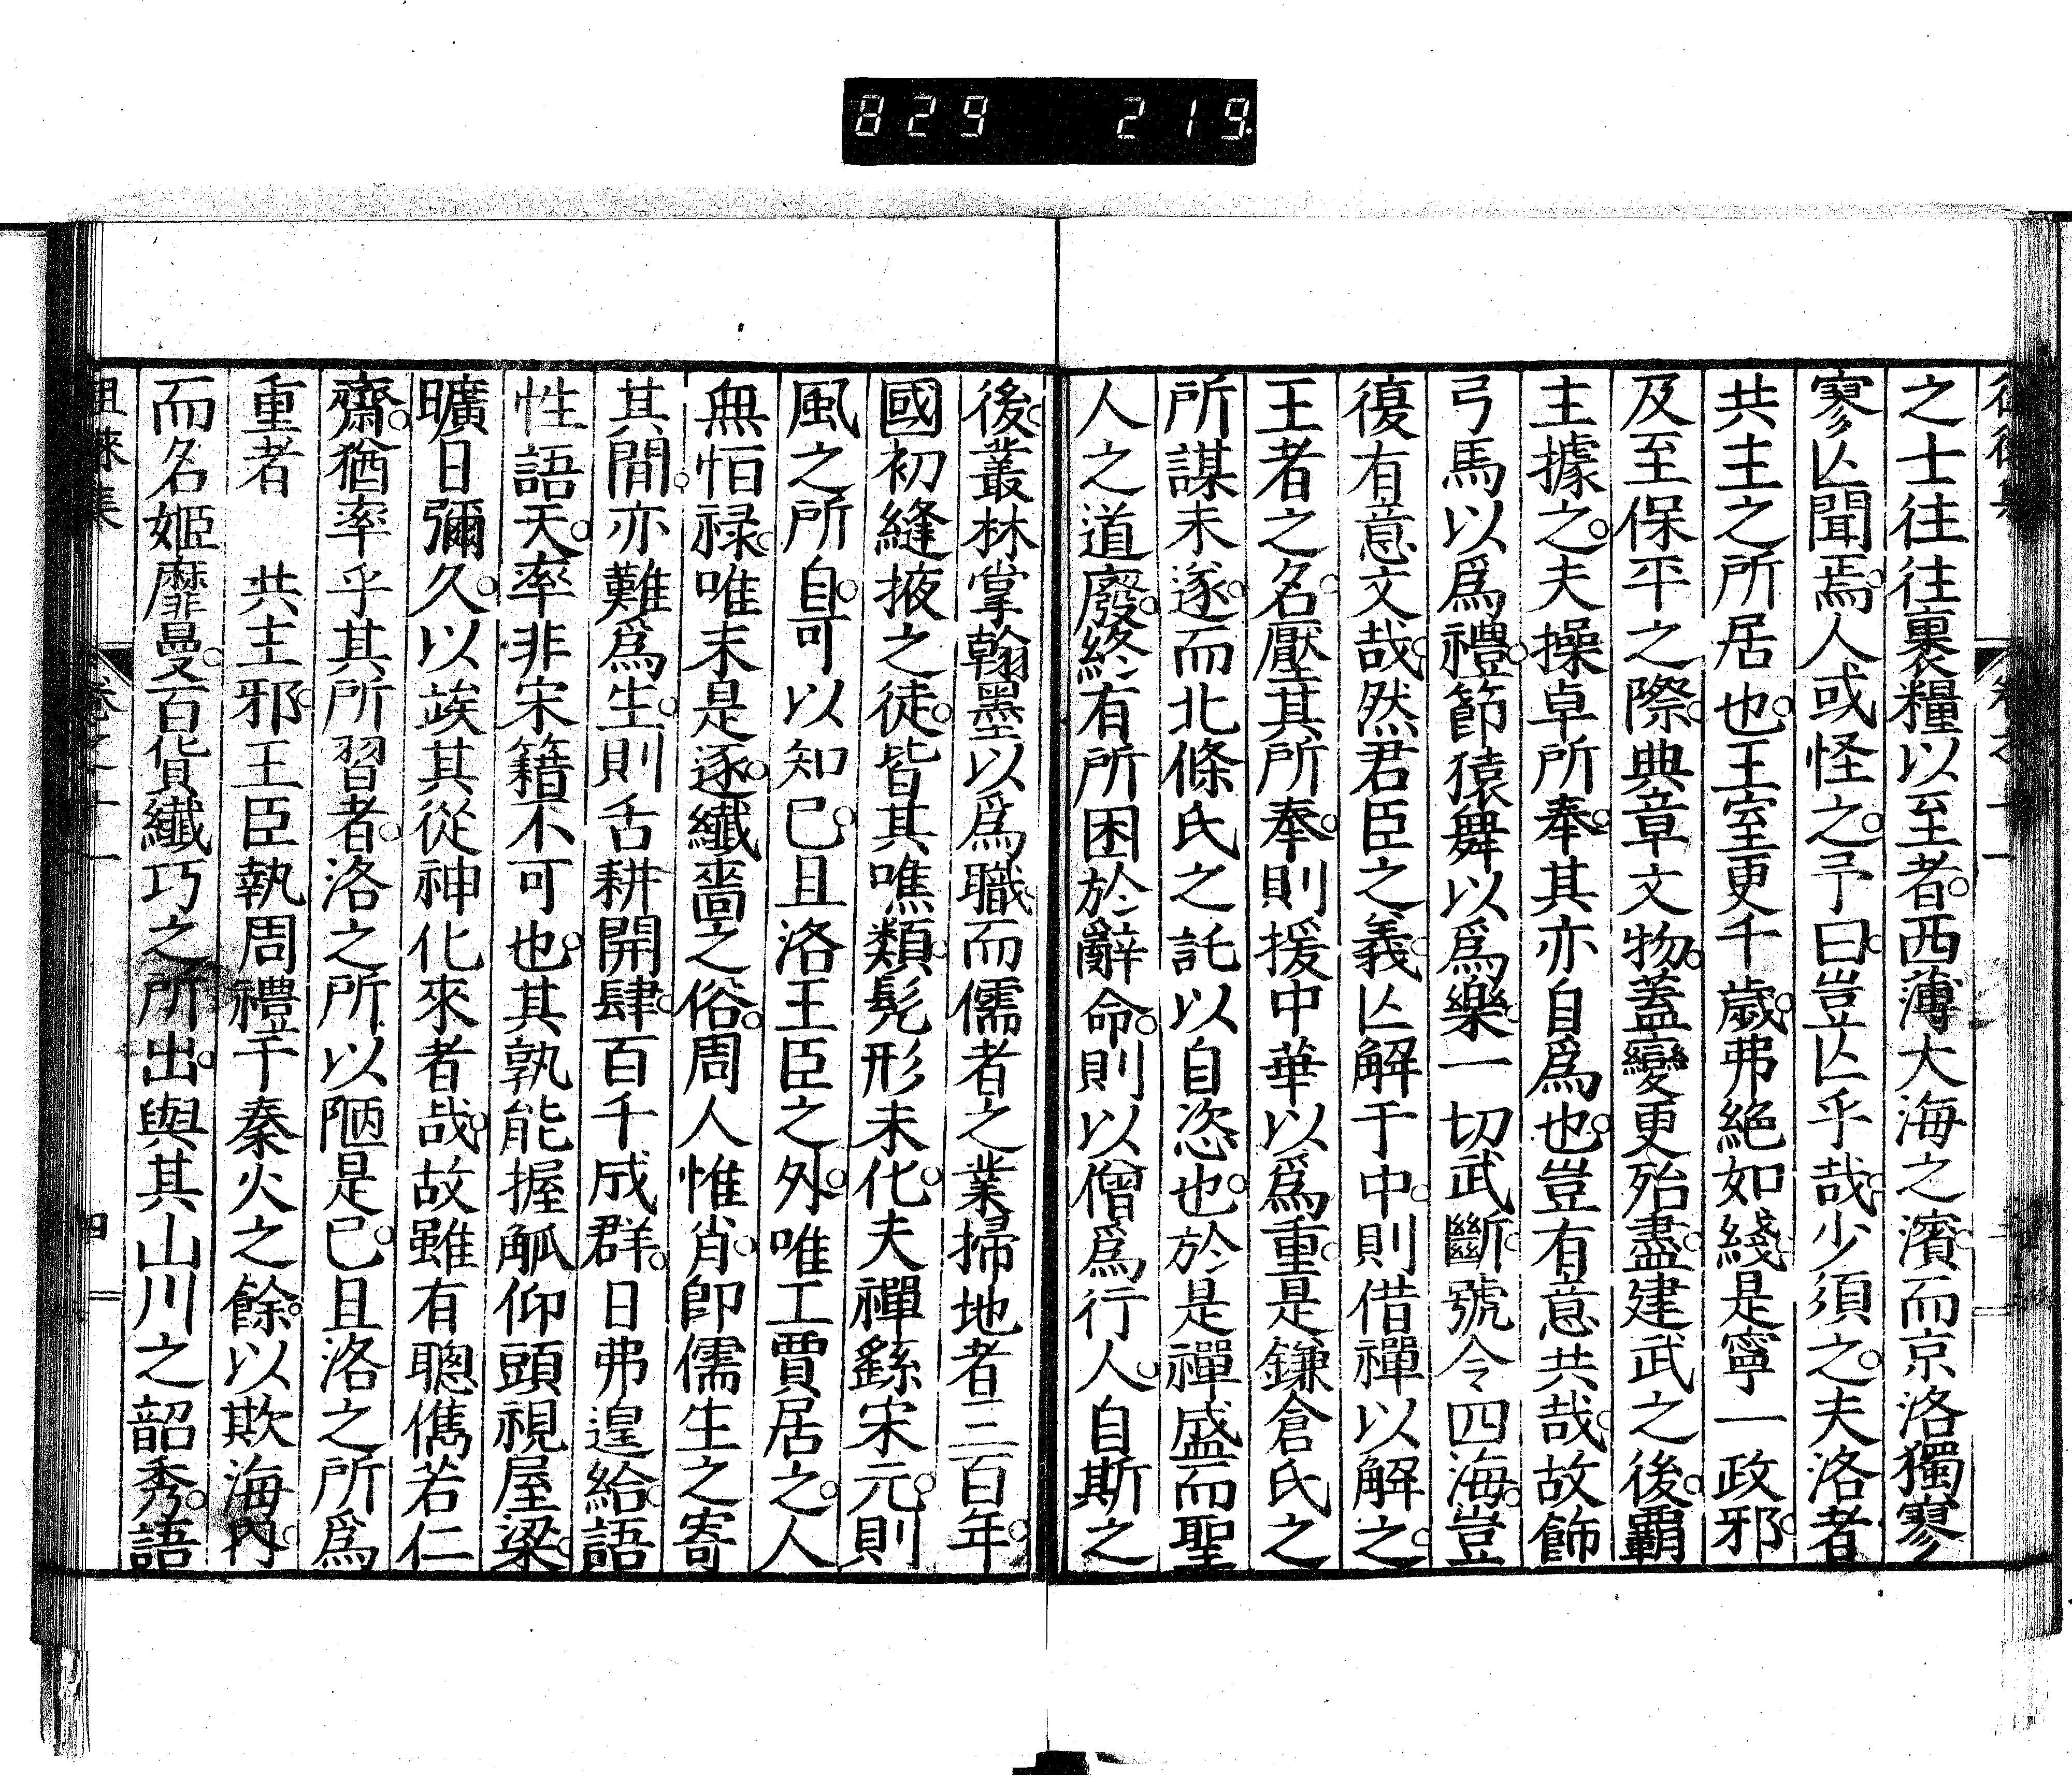 829 219.
之士往往裹糧以至者。西薄大海之濱。而京洛獨寥
寥亾聞焉。人或怪之。予曰。豈亾乎哉。少須之。夫洛者
共主之所居也。王室更千歲。弗絶如綫。是寧一政邪。
及至保平之際。典章文物。蓋變更殆盡。建武之後。覇
主據之。夫操卓所奉。其亦自爲也。豈有意共哉。故飾
弓馬以爲禮。節猿舞以爲樂。一切武斷。號令四海。豈
復有意文哉。然君臣之義。亾解于中。則借禪以解之。
王者之名。壓其所奉。則援中華以爲重。是鎌倉氏之
所謀未遂。而北條氏之託以自恣也。於是禪盛而聖
人之道廢。終有所困於辭命。則以僧爲行人。自斯之
後。叢林掌翰墨以爲職。而儒者之業掃地者三百年。
國初縫掖之徒。皆其噍類。髡形未化。夫禪繇宋元。則
風之所自。可以知已。且洛王臣之外。唯工賈居之。人
無恒禄。唯末是逐。纖嗇之俗。周人惟肖。卽儒生之寄
其間。亦難爲生。則舌耕開肆。百千成群。日弗遑給。語
性語天。率非宋籍不可也。其孰能握觚仰頭視屋梁。
曠日彌久。以竢其從神化來者哉。故雖有聰儁若仁
齋。猶率乎其所習者。洛之所以陋是已。且洛之所爲
重者 共主邪。王臣執周禮于秦火之餘。以欺海內。
而名姬靡曼。百貨纖巧之所出。與其山川之韶秀。語
徠集 卷之十一 四